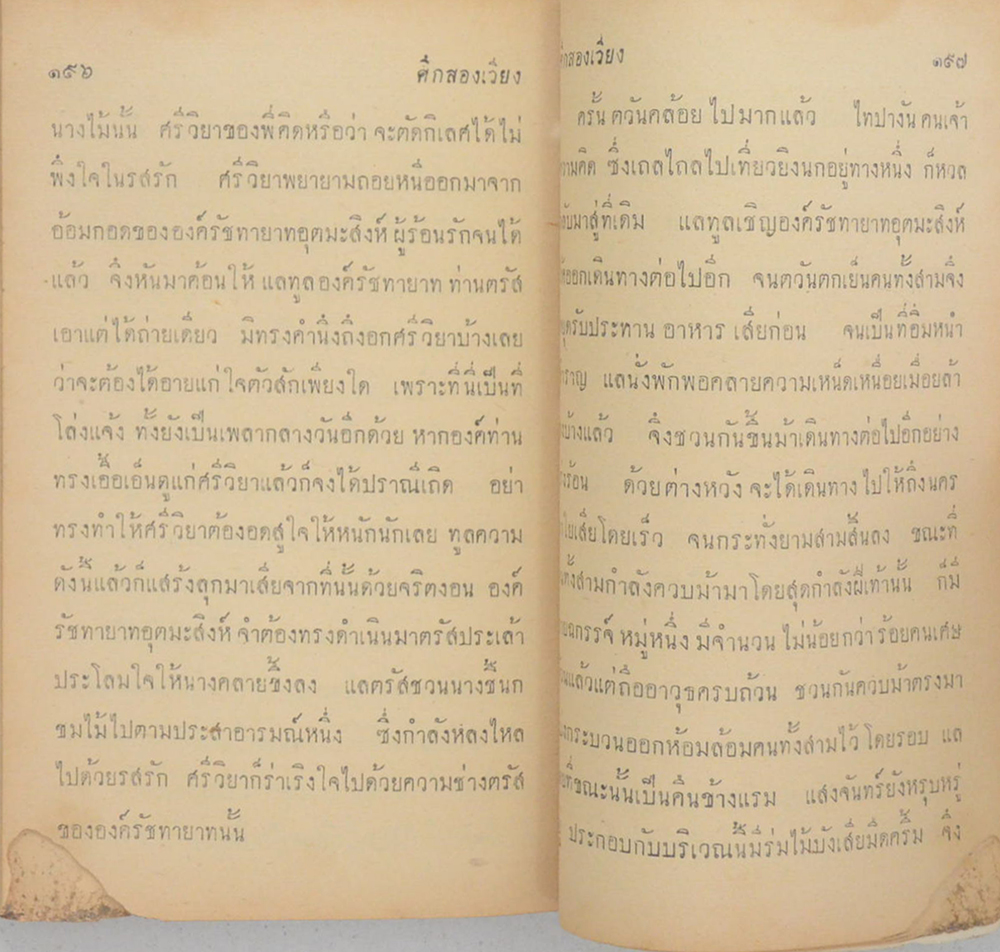 ๑๕๖ ศึกสองเวียง
นางไม้นั้น ศรีวิยาของพี่คิดหรือว่า จะตัดกิเลศได้ไม่
พึงใจในรสรัก ศรีวิยาพยายามถอยหนีออกมาจาก
อ้อมกอดขององค์รัชทายาทอุตมะสิงห์ ผู้ร้อนรักจนได้
แล้ว จึงหันมาค้อนให้ แลทูลองค์รัชทายาท ท่านตรัส
เอาแต่ได้ถ่ายเดียว มิทรงคำนึงถึงอกศรีวิยาบ้างเลย
ว่าจะต้องได้อายแก่ใจตัวสักเพียงใด เพราะที่นี่เป็นที่
โล่งแจ้ง ทั้งยังเป็นเพลากลางวันอีกด้วย หากองค์ท่าน
ทรงเอื้อเอ็นดูแก่ศรีวิยาแล้วก็จงได้ปราณีเถิด อย่า
ทรงทำให้ศรีวิยาต้องอดสูใจให้หนักนักเลย ทูลความ
ดังนี้แล้วก็แสร้งลุกมาเสียจากที่นั้นด้วยจริตงอน องค์
รัชทายาทอุตมะสิงห์ จำต้องทรงดำเนินมาตรัสประเล้า
ประโลมใจให้นางคลายขึ้งลง แลตรัสชวนนางชี้นก
ชมไม้ไปตามประสาอารมณ์หนึ่ง ซึ่งกำลังหลงไหล
ไปด้วยรสรัก ศรีวิยาก็ร่าเริงใจไปด้วยความช่างตรัส
ขององค์รัชทายาทนั้น
ศึกสองเวียง ๑๕๗
ครั้น ตวันคล้อย ไปมากแล้ว ไทปางัน คนเจ้า
ความคิด ซึ่งเถลไถลไปเที่ยวยิงนกอยู่ทางหนึ่ง ก็หวล
กลับมาสู่ที่เดิม แลทูลเชิญองค์รัชทายาทอุตมะสิงห์
ให้ออกเดินทางต่อไปอีก จนตวันตกเย็นคนทั้งสามจึง
หยุดรับประทาน อาหาร เสียก่อน จนเป็นที่อิ่มหนำ
สำราญ แลนั่งพักพอคลายความเหน็ดเหนื่อยเมื่อยล้า
ลงบ้างแล้ว จึงชวนกันขึ้นม้าเดินทางต่อไปอีกอย่าง
ด้วยต่างหวัง จะได้เดินทาง ไปให้ถึงนคร
เสียโดยเร็ว จนกระทั่งยามสามสิ้นลง ขณะที่
ทั้งสามกำลังควบม้ามาโดยสุดกำลังฝีเท้านั้น ก็มี
หมู่หนึ่ง มีจำนวน ไม่น้อยกว่า ร้อยคนเศษ
ล้วนแล้วแต่ถืออาวุธครบถ้วน ชวนกันควบม้าตรงมา
กระบวนออกห้อมล้อมคนทั้งสามไว้ โดยรอบ แล
ขณะนั้นเป็นคืนข้างแรม แสงจันทร์ยังหรุบหรู่
ประกอบกับบริเวณนี้มีร่มไม้บังเสียมืดครึ้ม จึง